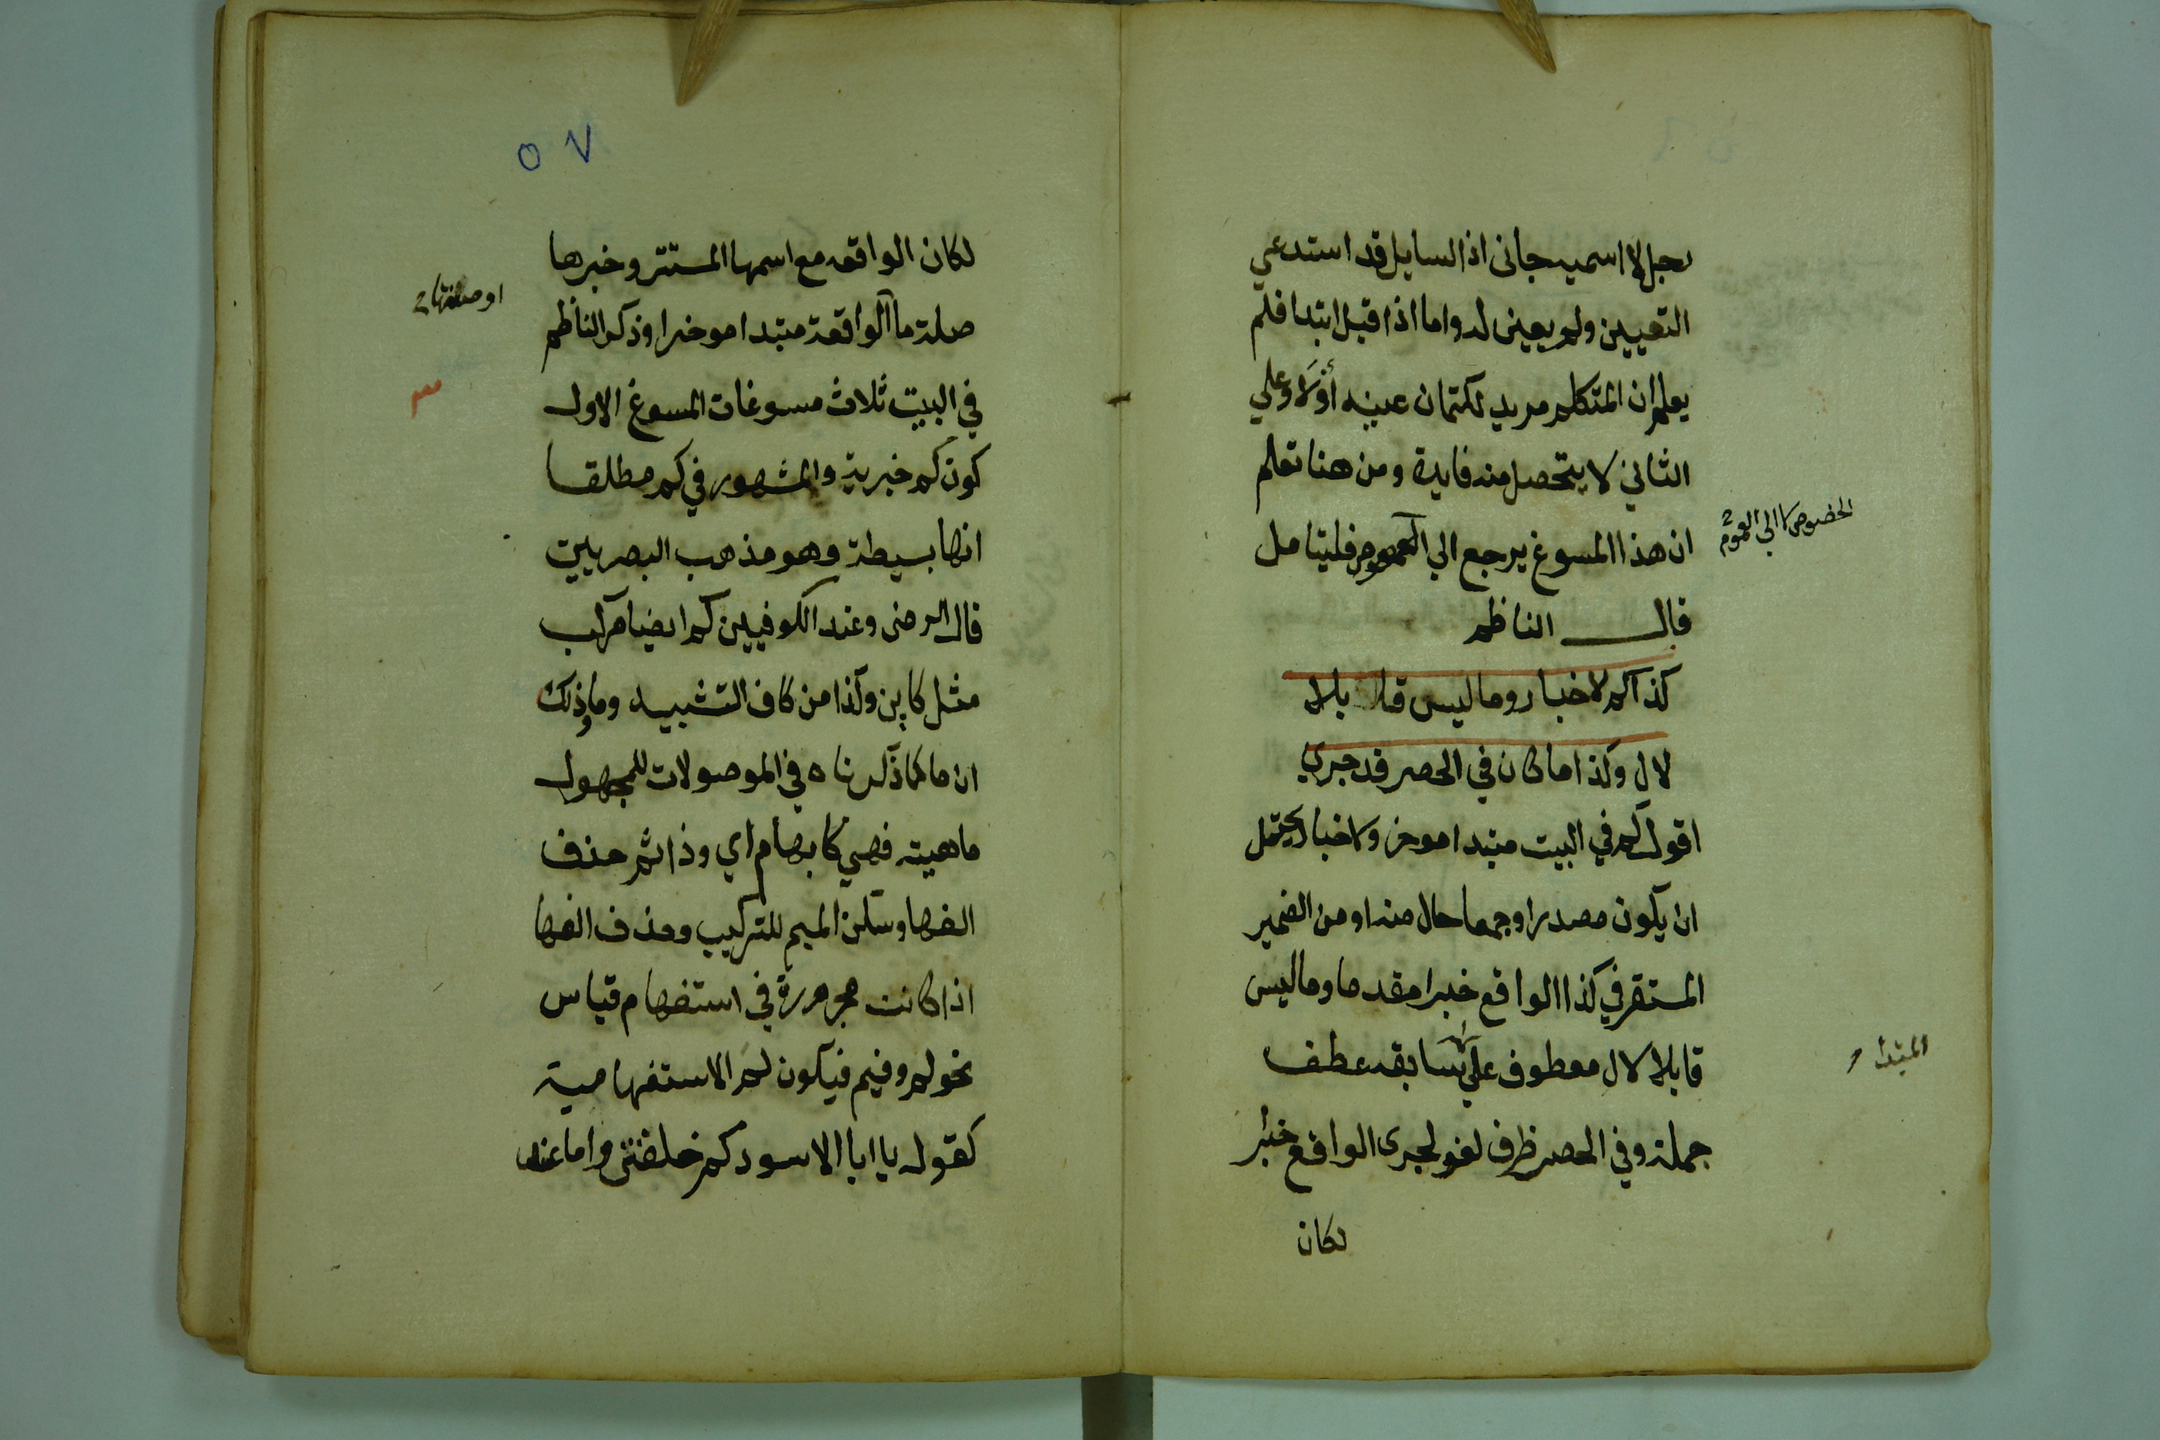 رجل لا اسميه جاني اذ السايل قد استدعي
التعيين ولم يعين له واما اذا قيل ابتدا فلم
يعلم ان المتكلم مريد لكتمان عينه أولا وعلي
الثاني لا يتحصل منه فايدة ومن هنا تعلم
ان هذا المسوغ يرجع الي العموم فليتامل
الخصوص لا الي العموم
قال الناظم
كذا كم لاخبار وما ليس قابلا
لال وكذا ما كان في الحصر قد جري
اقول كم في البيت مبتدا موخر ولاخبار يحتمل
ان يكون مصدرا وجمعا حال منه او من الضمير
المستقر في كذا الواقع خبرا مقدما وما ليس
قابلا لال معطوف علي سابقه عطف
المبتدأ
جملة وفي الحصر ظرف لغو لجرى الواقع خبر
لكان
٥٧
لكان الواقعه مع اسمها المستتر وخبرها
او صفتها
صلة ما الواقعة مبتدا موخرا وذكر الناظم
في البيت ثلاث مسوغات المسوغ الاول
٣
كون كم خبرية والمشهور في كم مطلقا
انها بسيطة وهو مذهب البصريين
قال الرضى وعند الكوفيين كم ايضا مركب
مثل كاين وكذا من كاف التشبيه وما وذلك
ان ما كما ذكرناه في الموصولات للمجهول
ماهيته فهي كابهام اي وذا ثم حذف
الفها وسكن الميم للتركيب وحذف الفها
اذا كانت مجرورة في استفهام قياس
نحو لم وفيم فيكون لم الاستفهامية
كقوله يا ابا الاسود كم خلفتنى واما عند